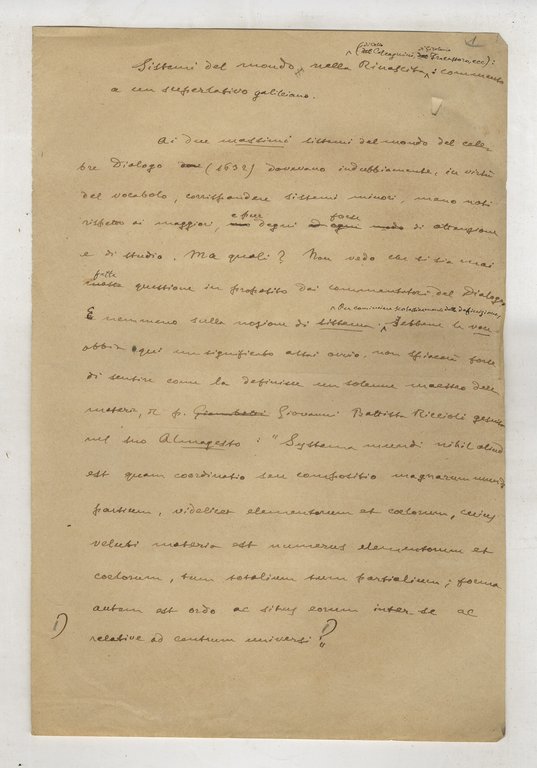 1
Sistemi del mondo, nella Rinascita (del Calcagnini, Fracastoro, ecc.): commento
a un superlativo galileiano.
Ai due massimi sistemi del mondo del cele-
bre Dialogo (1632) dovevano indubbiamente, in virtù
del vocabolo, corrispondere sistemi minori, meno noti
rispetto ai maggiori, eppur degni forse di attenzione
e di studio. Ma quali? Non vedo che si sia mai
fatta questione in proposito dai commentatori del Dialogo
E nemmeno sulla nozione di sistema. definizione, Sebbene la voce
abbia qui un significato assai ovvio, non spiacerà forse
di sentire come la definisse un solenne maestro della
materia, il p. Giovanni Battista Riccioli gesuita
nel suo Almagesto: "Systema mundi nihil aliud
est quam coordinatio seu compositio magnarum mundi
partium, videlicet elementorum et coelorum, cuius
veluti materia est numerus elementorum et
coelorum, tum totalium tum partialium; forma
autem est ordo ac situs eorum inter se ac
1) relative ad centrum universi"